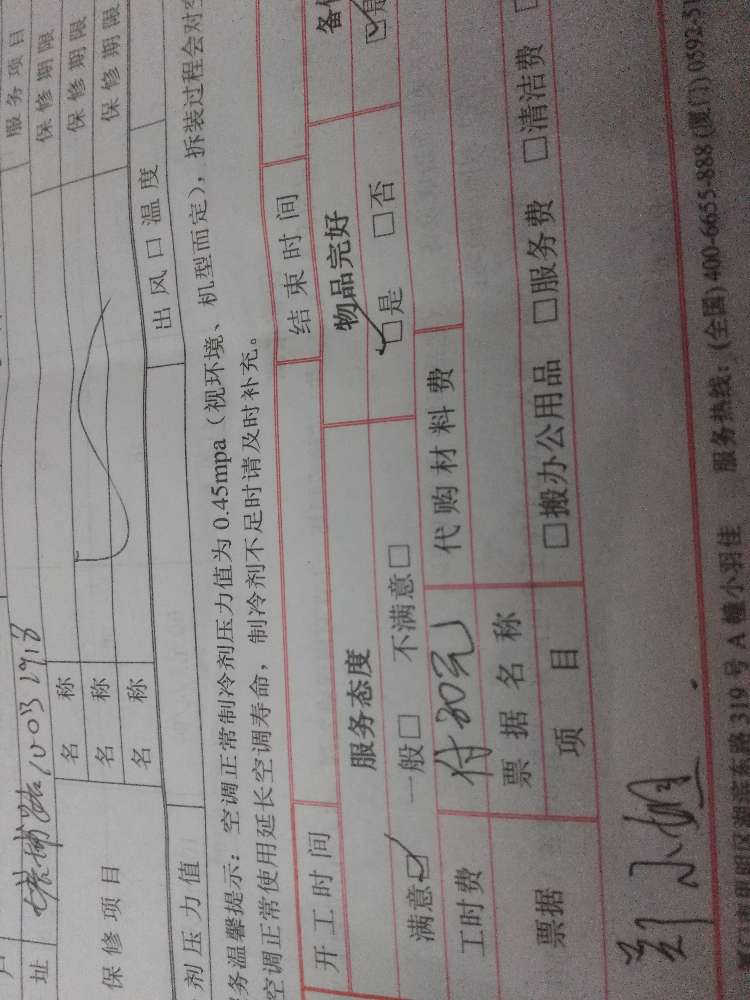 户
服务项目
址
保修项目
名称
保修期限
名称
保修期限
名称
保修期限
剂压力值
出风口温度
务温馨提示：空调正常制冷剂压力值为 0.45mpa（视环境、机型而定），拆装过程会对空
空调正常使用延长空调寿命，制冷剂不足时请及时补充。
开工时间
结束时间
服务态度
物品完好
满意☑ 一般□ 不满意□
☑是 □否
☑是
工时费
付20元
代购材料费
票据
票据名称
项目
□搬办公用品 □服务费 □清洁费
郑小姐
湖滨东路 319 号 A 幢小羽佳 服务热线：(全国) 400-6655-888 (厦门) 0592-51